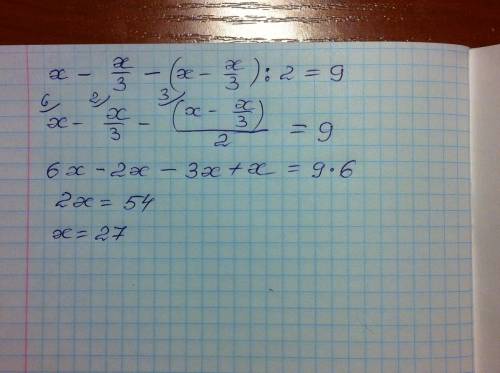 x - x/3 - (x - x/3) : 2 = 9
6) 2) 3)
x - x/3 - (x - x/3)/2 = 9
6x - 2x - 3x + x = 9·6
2x = 54
x = 27